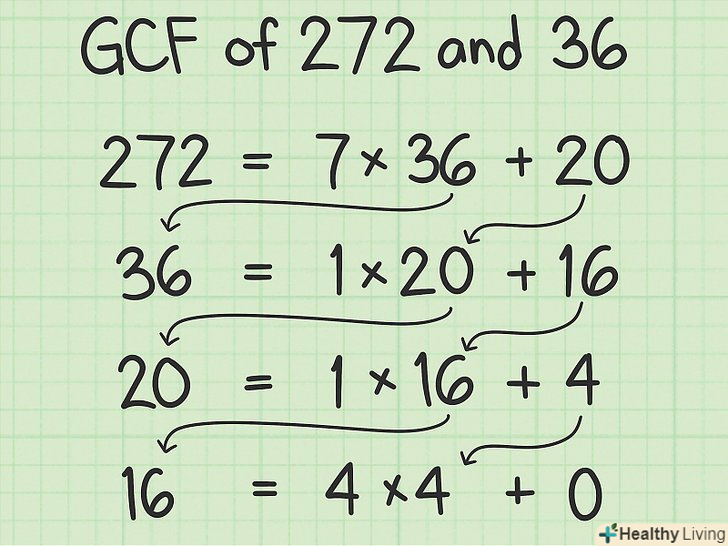 GCF of 272 and 36
272 = 7 × 36 + 20
36 = 1 × 20 + 16
20 = 1 × 16 + 4
16 = 4 × 4 + 0
Healthy Living